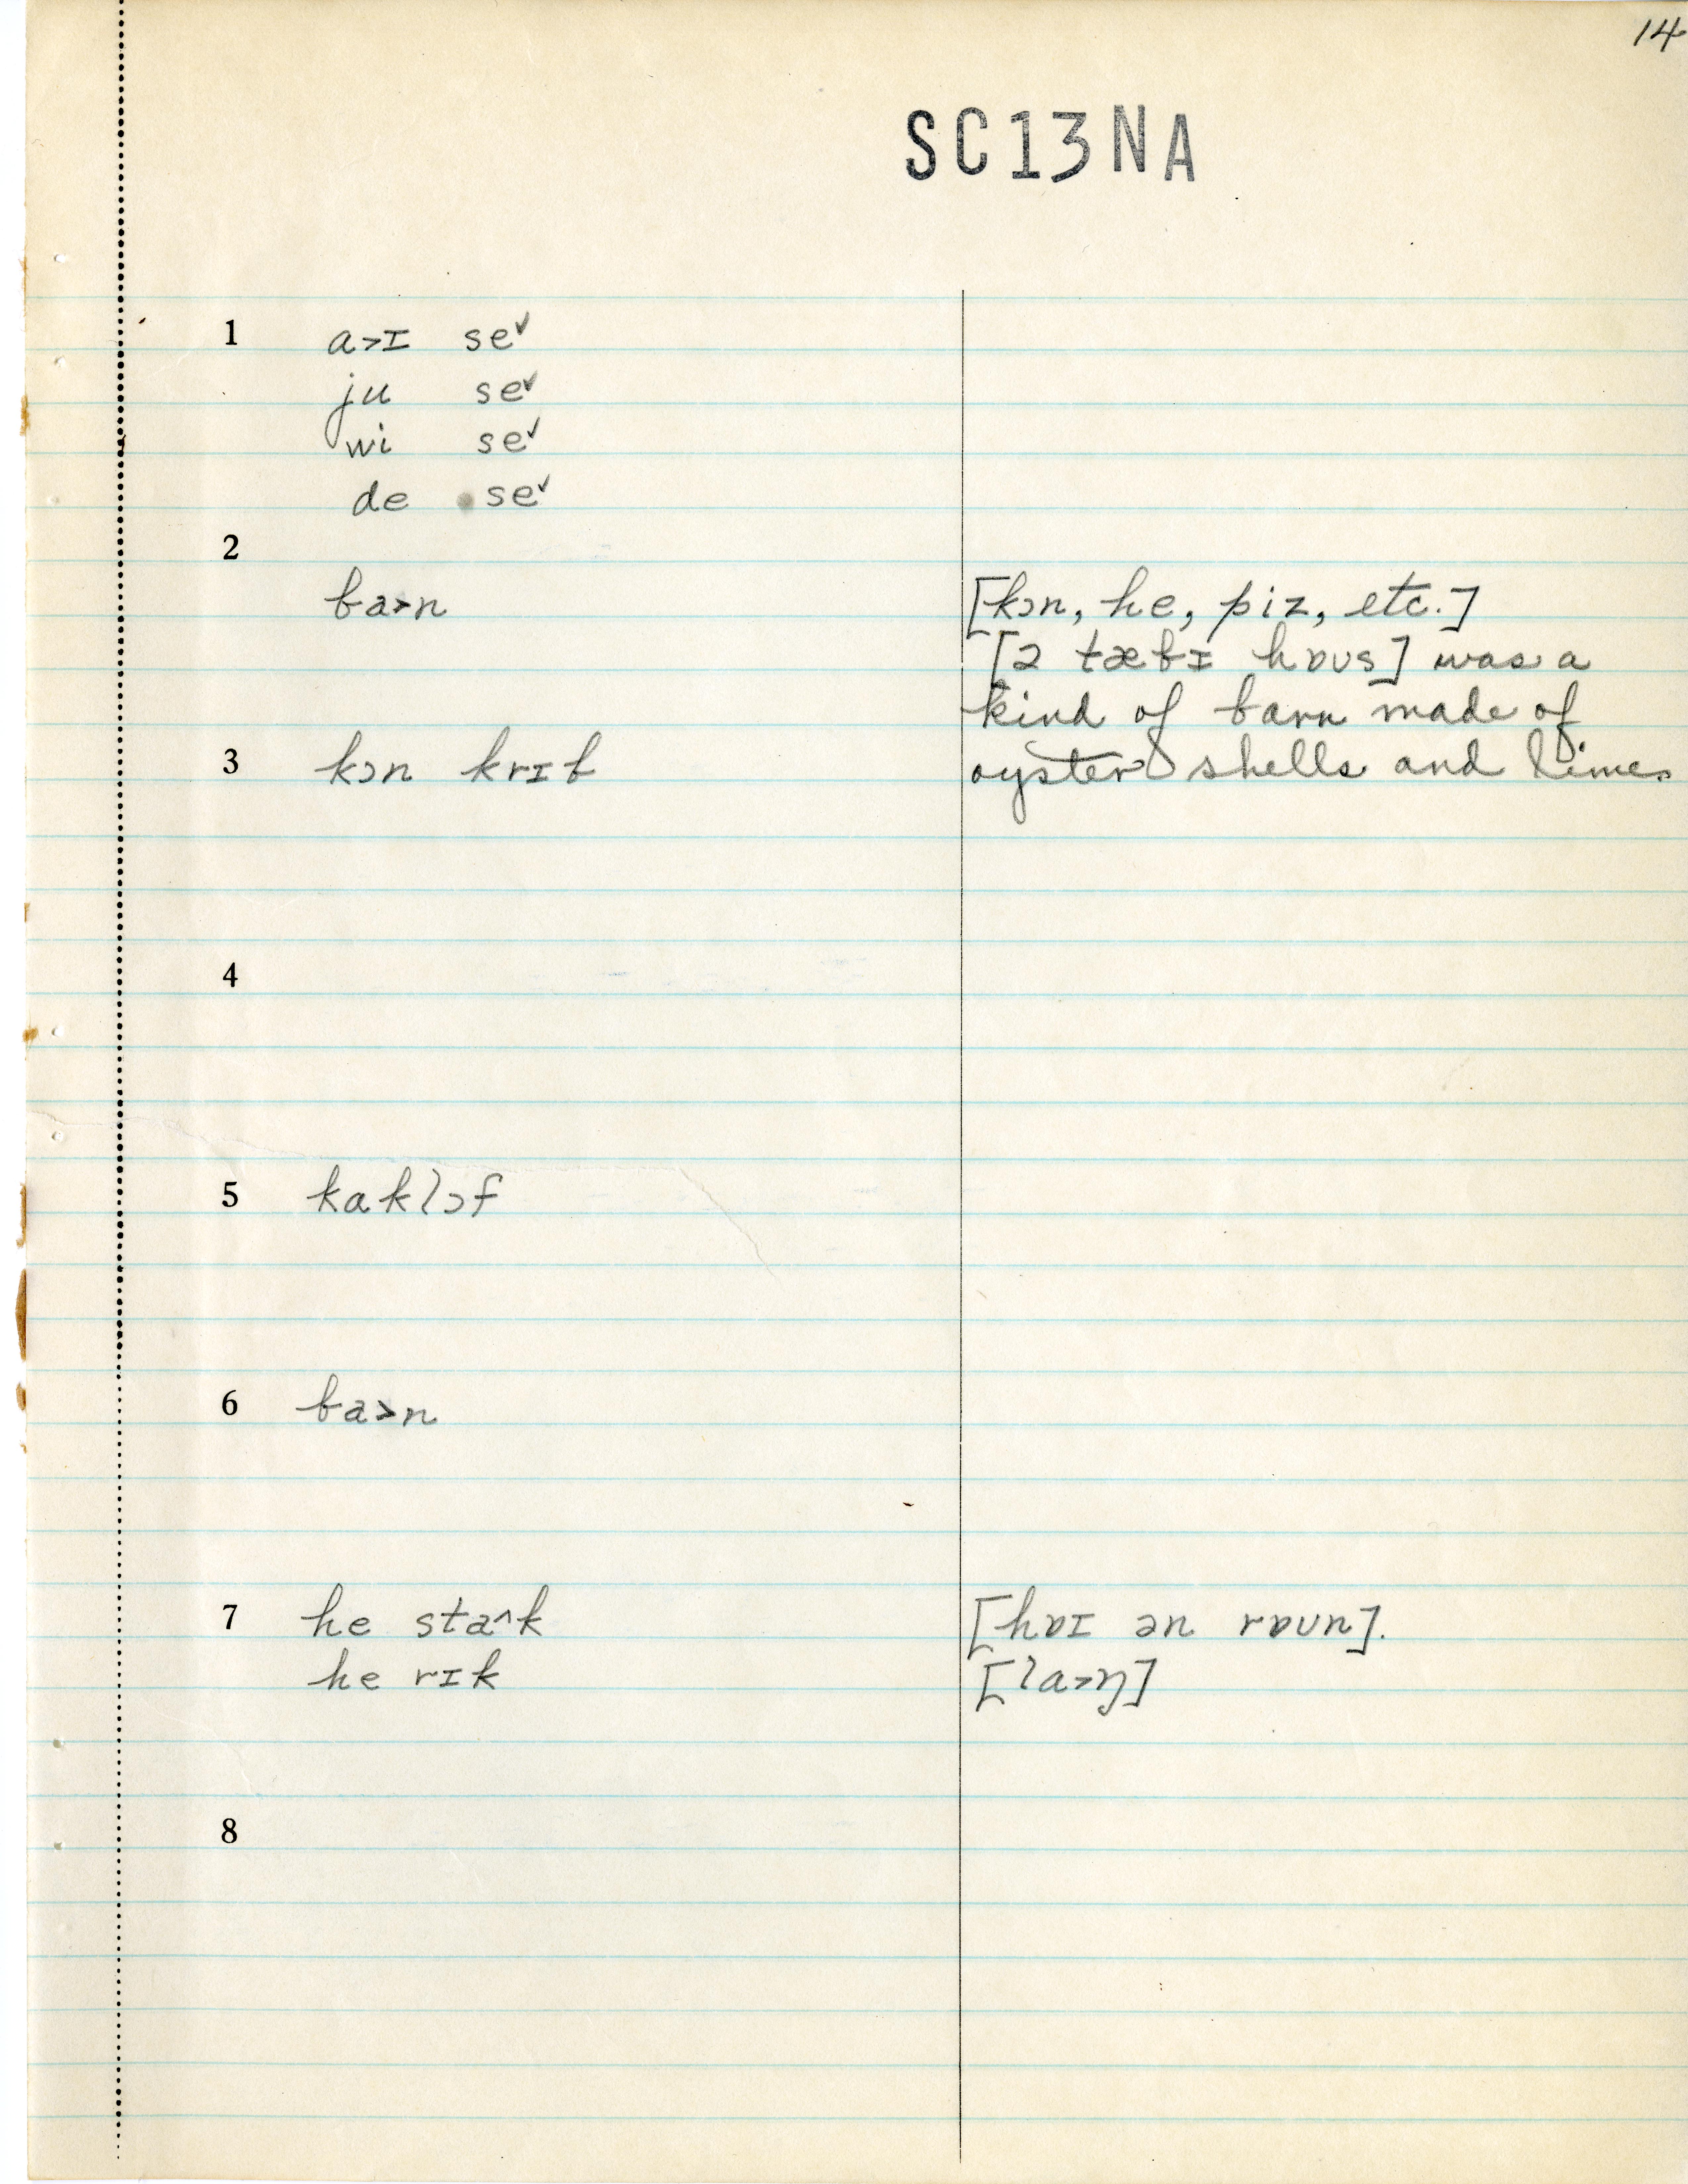 14
SC13NA
1 a>ɪ se˅
ju se˅
wi se˅
de se˅
2
ba>n [kɔn, he, piz, etc.]
[ə tæbɪ hɒʊs] was a
kind of barn made of
3 kɔn krɪb oyster shells and lime.
4
5 kaklɔf
6 ba>n
7 he sta^k [hɒɪ ən rɒʊn].
he rɪk [la>ŋ]
8